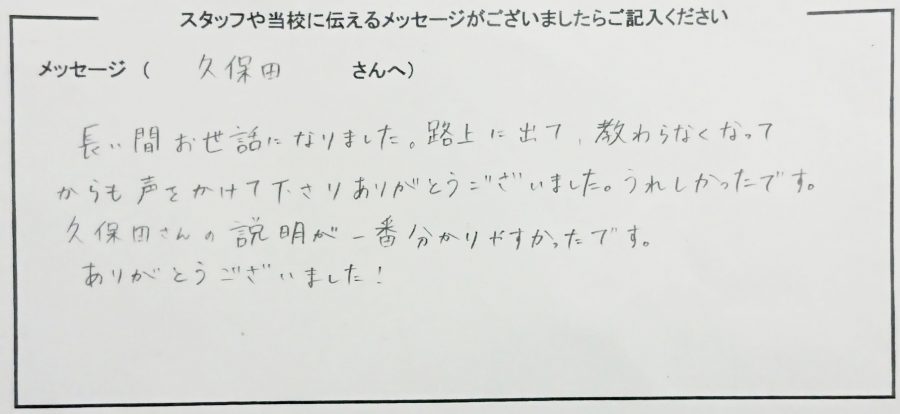 スタッフや当校に伝えるメッセージがございましたらご記入ください
メッセージ ( 久保田 さんへ)
長い間お世話になりました。路上に出て、教わらなくなって
からも声をかけて下さりありがとうございました。うれしかったです。
久保田さんの説明が一番分かりやすかったです。
ありがとうございました!